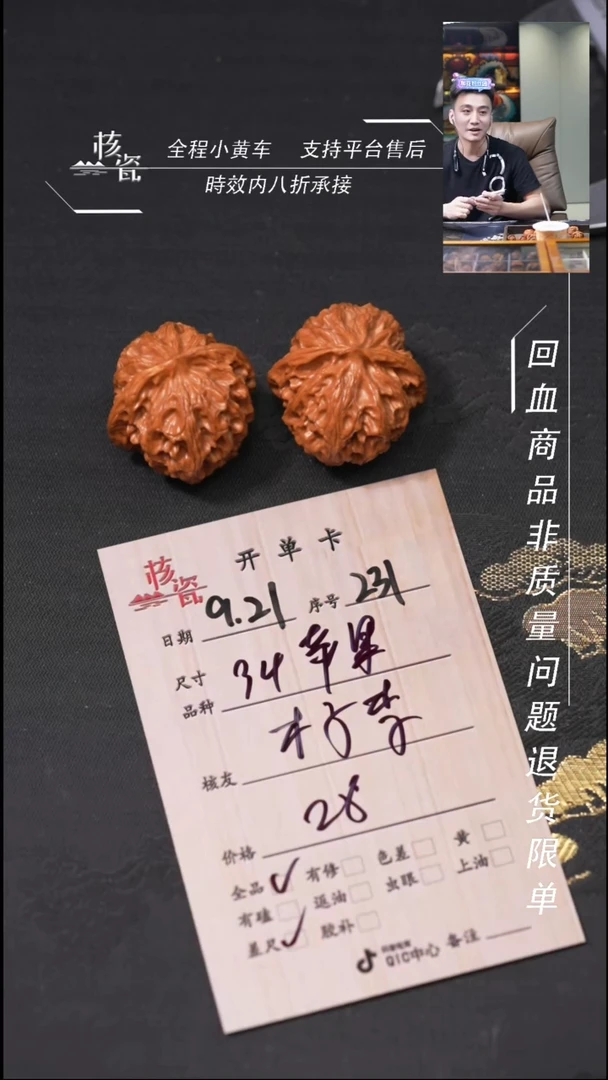 核瓷
全程小黄车 支持平台售后
時效内八折承接
回血商品非质量问题退货限单
核瓷
开单卡
日期 9.21 序号 231
尺寸
品种 34 苹果
核友
价格 28
全品 ✓ 有修 色差 黄
有磕 返油 虫眼 上油
差尺 ✓ 胶补
抖音电商
QIC中心 备注